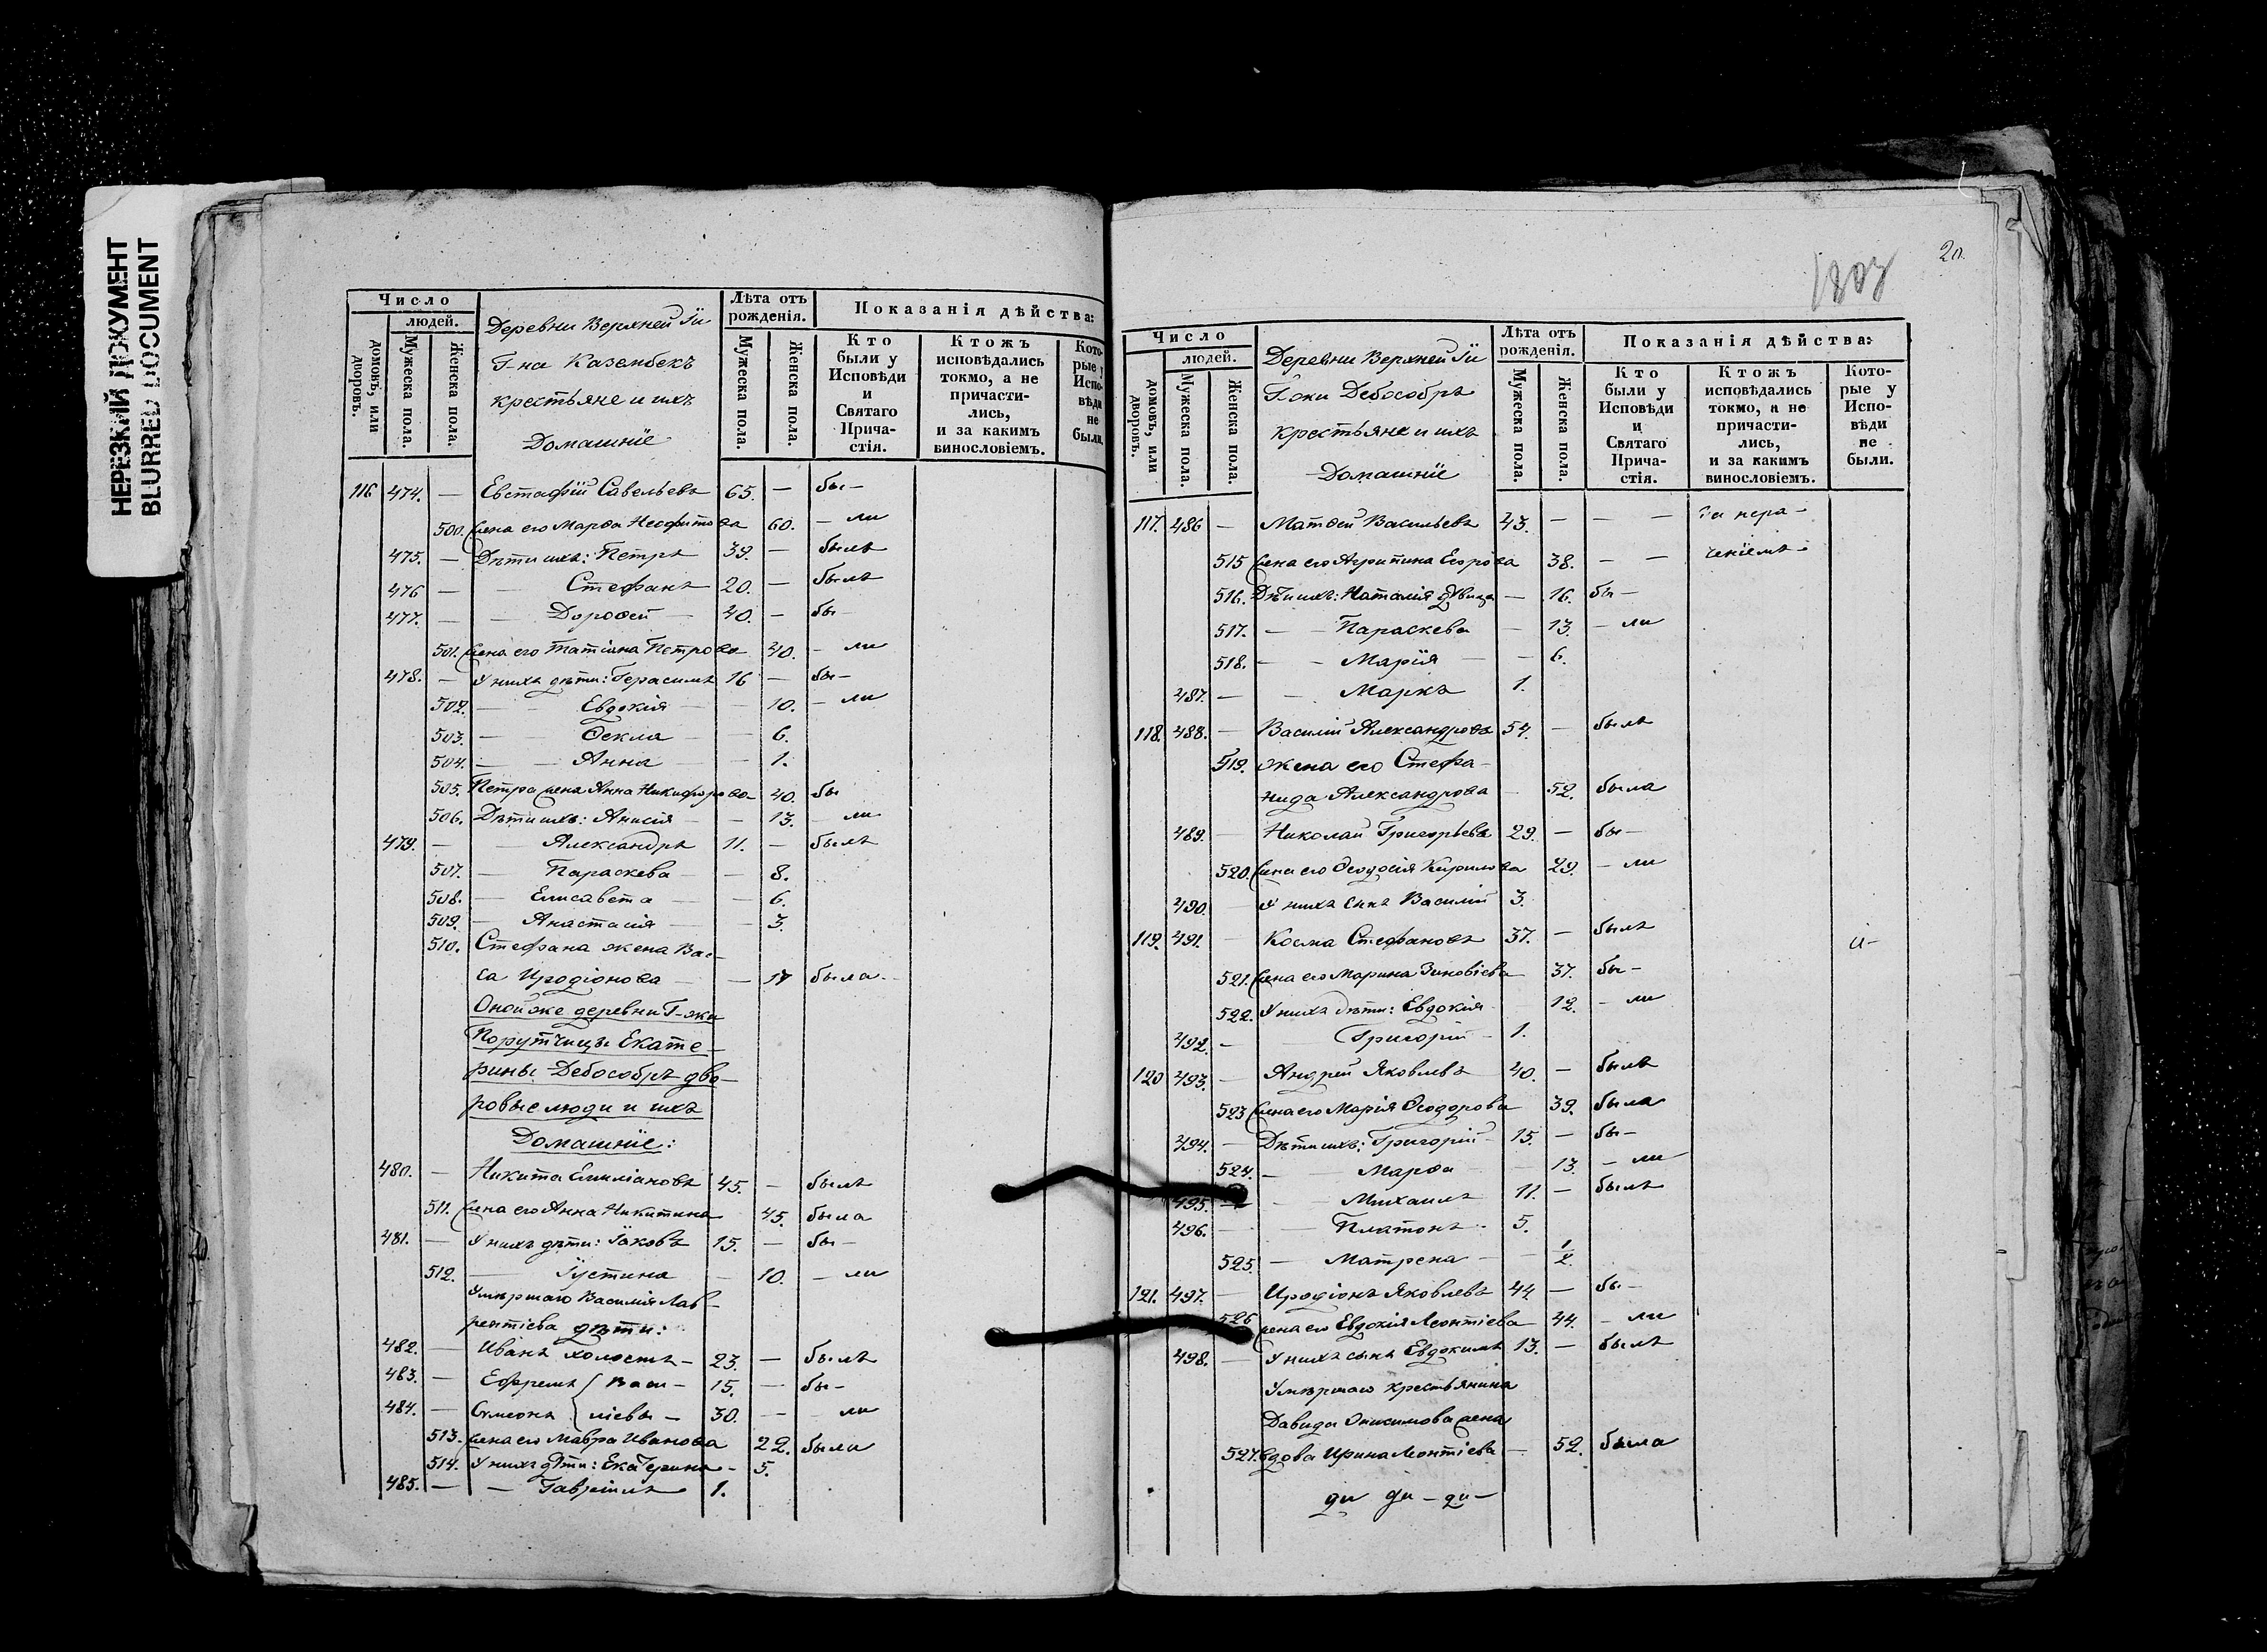 НЕРЕЗКИЙ ДОКУМЕНТ
BLURRED DOCUMENT
Число
людей.
домовъ, или дворовъ.
Мужеска пола.
Женска пола.
Деревни Верхней
Г-на Казембекъ
крестьяне и ихъ
Домашніе
Лѣта отъ рожденія.
Мужеска пола.
Женска пола.
Показанія дѣйства:
Кто были у Исповѣди и Святаго Прича-стія.
Ктожъ исповѣдались токмо, а не причасти-лись, и за какимъ винословіемъ.
Кото-рые у Испо-вѣди не были.
116 474. — Евстафій Савельевъ 65. — бы-
500. жена его Марѳа Неофитова 60. - ли
475. — Дѣти ихъ: Петръ 39. — былъ
476 — — Стефанъ 20. — былъ
477. — — Дороѳей — 40. — бы-
501. жена его Татіана Петрова 40. - ли
478. — У нихъ дѣти: Герасимъ 16 — бы-
502. — Евдокія — 10. - ли
503. — Ѳекла — 6.
504. — Анна — 1.
505. Петра жена Анна Никифорова 40. бы
506. Дѣти ихъ: Анисія — 13. ли
479. — Александръ 11. — былъ
507. — Параскева — 8.
508. — Елисавета — 6.
509. — Анастасія — 3.
510. Стефана жена Вас-
са Иродіонова — 17 была
Оной же деревни Г-жи
Порутчицы Екате-
рины Дебособръ дво-
ровые люди и ихъ
Домашніе:
480. — Никита Емиліановъ 45. — былъ
511. жена его Анна Никитина 45. была
481. — У нихъ дѣти: Іаковъ 15. — бы-
512. — Іустина — 10. - ли
Умершаго Василія Лав-
рентіева дѣти:
482. — Иванъ холостъ - 23. — былъ
483. — Ефремъ { Васи- 15. — бы-
484. — Симеонъ { ліевы - 30. — ли
513. жена его Мавра Иванова 22. была
514. У нихъ дѣти: Екатерина - 5.
485. — — Гавріилъ 1.
20.
Число
людей.
домовъ, или дворовъ.
Мужеска пола.
Женска пола.
Деревни Верхней
Г-жи Дебособръ
крестьяне и ихъ
Домашніе
Лѣта отъ рожденія.
Мужеска пола.
Женска пола.
Показанія дѣйства:
Кто были у Исповѣди и Святаго Прича-стія.
Ктожъ исповѣдались токмо, а не причасти-лись, и за какимъ винословіемъ.
Кото-рые у Испо-вѣди не были.
117. 486 — Матѳей Васильевъ 43. — — — За нера-
515 жена его Агрипина Егорова 38. — — ченіемъ
516. Дѣти ихъ: Наталія дѣвица — 16. бы-
517. — — Параскева — 13. - ли
518. — — Марія — — 6.
487. — — Маркъ 1.
118. 488. — Василій Александровъ 54. — былъ
519. жена его Стефа-
нида Александрова — 52. была
489. — Николай Григорьевъ 29. — бы-
520. жена его Ѳеодосія Кирилова 29. - ли
490. — У нихъ сынъ Василій 3.
119. 491. — Косма Стефановъ 37. — былъ
521. жена его Марина Зиновіева 37. бы-
522. У нихъ дѣти: Евдокія 12. - ли
492. — Григорій - 1.
120 493. — Андрей Яковлевъ 40. — былъ
523 жена его Марія Ѳеодорова 39. была
494. — Дѣти ихъ: Григорій - 15. — бы-
524. — Марѳа 13. - ли
495. — — Михаилъ 11. — былъ
496. — — Платонъ - 5.
525. — Матрена — 1/2.
121. 497. — Иродіонъ Яковлевъ 44 — бы-
526 жена его Евдокія Леонтіева 44. - ли
498. — У нихъ сынъ Евдокимъ 13. — былъ
Умершаго крестьянина
Давида Онисимова жена
527. вдова Ирина Леонтіева — 52. была